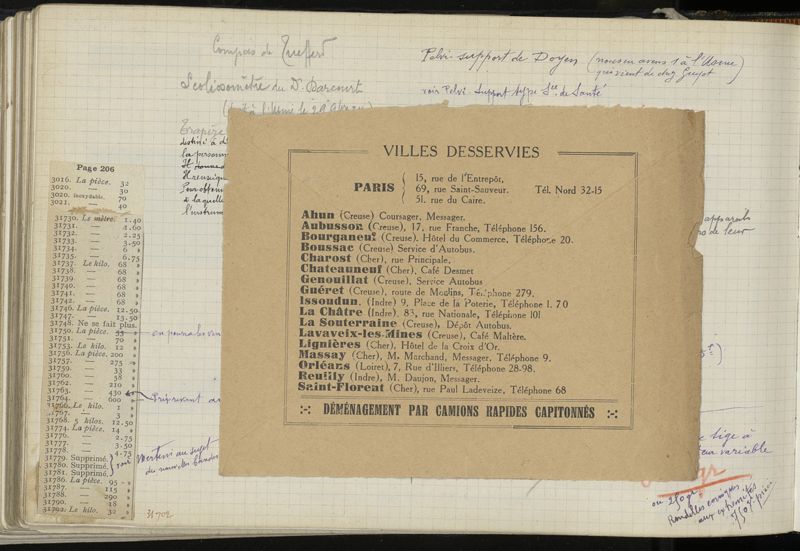 Compas de Truffert
Pelvi-support de Doyen (nous en avons 1 à l'Usine
qui vient de chez Guyot)
Scoliosomètre du Dr Barcourt
voir Pelvi-Support type Sce de Santé
Trapèze
destiné à
la personne
Pour obtenir
à laquelle
l'instrument
Page 206
3016. La pièce. 32
3020. — 30
3020. inoxydable. 70
3021. — 40
31730. Le mètre. 1.40
31731. — 1.60
31732. — 2.25
31733. — 2.50
31734. — 6 »
31735. — 6.75
31737. Le kilo. 68 »
31738. — 68 »
31739. — 68 »
31740. — 68 »
31741. — 68 »
31742. — 68 »
31746. La pièce. 12.50
31747. — 13.50
31748. Ne se fait plus.
31750. La pièce. 55 »
31751. — 70 »
31753. Le kilo. 12 »
31756. La pièce. 200 »
31757. — 275 »
31759. — 33 »
31760. — 38 »
31762. — 210 »
31763. — 430 »
31764. — 600 »
Le kilo. 1 »
3 »
31768. 5 kilos. 12.50
31774. La pièce. 14 »
31776. — 2.75
31777. — 3.50
31778. — 4.75
31779. Supprimé.
31780. Supprimé.
31781. Supprimé.
31786. La pièce. 95 »
31787. — 115 »
31788. — 290 »
31790. — 18 »
31792. Le kilo. 32 »
voir
au sujet
31702
VILLES DESSERVIES
PARIS { 15, rue de l'Entrepôt,
69, rue Saint-Sauveur. Tél. Nord 32-15
51. rue du Caire.
Ahun (Creuse) Coursager, Messager.
Aubusson (Creuse), 17, rue Franche, Téléphone 156.
Bourganeuf (Creuse). Hôtel du Commerce, Téléphone 20.
Boussac (Creuse) Service d'Autobus.
Charost (Cher), rue Principale.
Chateauneuf (Cher), Café Desmet
Genouillat (Creuse), Service Autobus
Guéret (Creuse), route de Moulins, Téléphone 279.
Issoudun. (Indre) 9, Place de la Poterie, Téléphone 1. 70
La Châtre (Indre). 83, rue Nationale, Téléphone 101
La Souterraine (Creuse), Dépôt Autobus.
Lavaveix-les-Mines (Creuse), Café Maltère.
Lignières (Cher), Hôtel de la Croix d'Or.
Massay (Cher), M. Marchand, Messager, Téléphone 9.
Orléans (Loiret), 7, Rue d'Illiers, Téléphone 28-98.
Reuilly (Indre), M. Daujon, Messager.
Saint-Florent (Cher), rue Paul Ladeveize, Téléphone 68
DÉMÉNAGEMENT PAR CAMIONS RAPIDES CAPITONNÉS
appareils
de leur
tige à
variable
aux extrémités